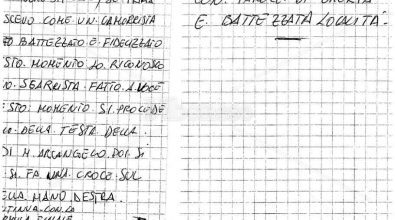 SCEVO COME UN CAMORRISTA
BATTEZZATO E FIDELIZZATO
STO MOMENTO LO RICONOSCO
SGARRISTA FATTO A VOCE
STO MOMENTO SI PROCEDE
DELLA TESTA DELLA
DI M. ARCANGELO POI SI
SI FA UNA CROCE SUL
ELLA MANO DESTRA
CON PAROLE DI
E BATTEZZATA LOCALITÀ